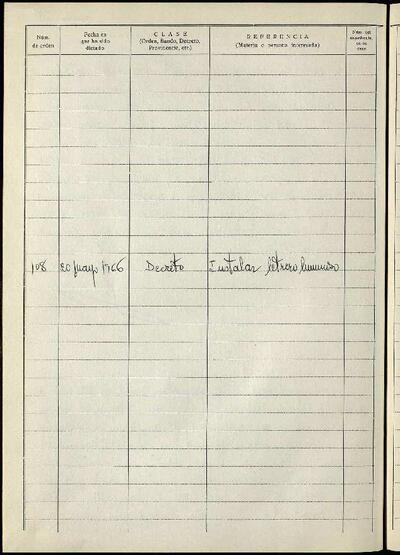 Núm.
de orden
Fecha en
que ha sido
dictado
CLASE
(Orden, Bando, Decreto,
Providencia, etc.)
REFERENCIA
(Materia o persona interesada)
Núm. del
expediente,
en su
caso
108 20 mayo 1966 Decreto Instalar letrero luminoso